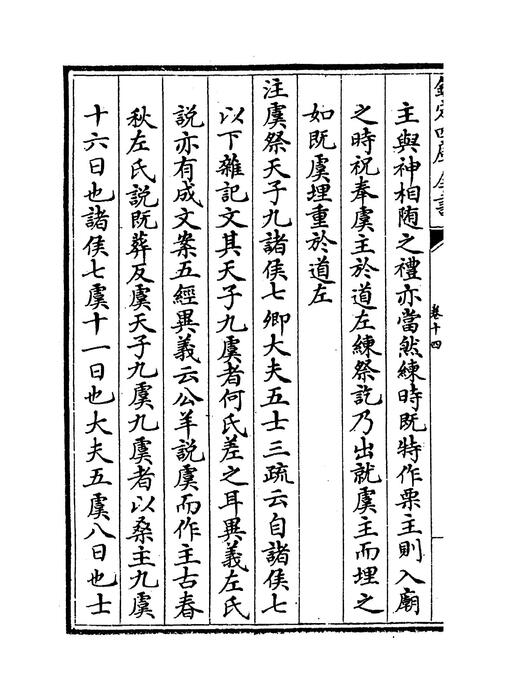 欽定四庫全書
卷十四
主與神相隨之禮亦當然練時既特作栗主則入廟
之時祝奉虞主於道左練祭訖乃出就虞主而埋之
如既虞埋重於道左
注虞祭天子九諸侯七卿大夫五士三疏云自諸侯七
以下雜記文其天子九虞者何氏差之耳異義左氏
說亦有成文案五經異義云公羊說虞而作主古春
秋左氏說既葬反虞天子九虞九虞者以桑主九虞
十六日也諸侯七虞十一日也大夫五虞八日也士